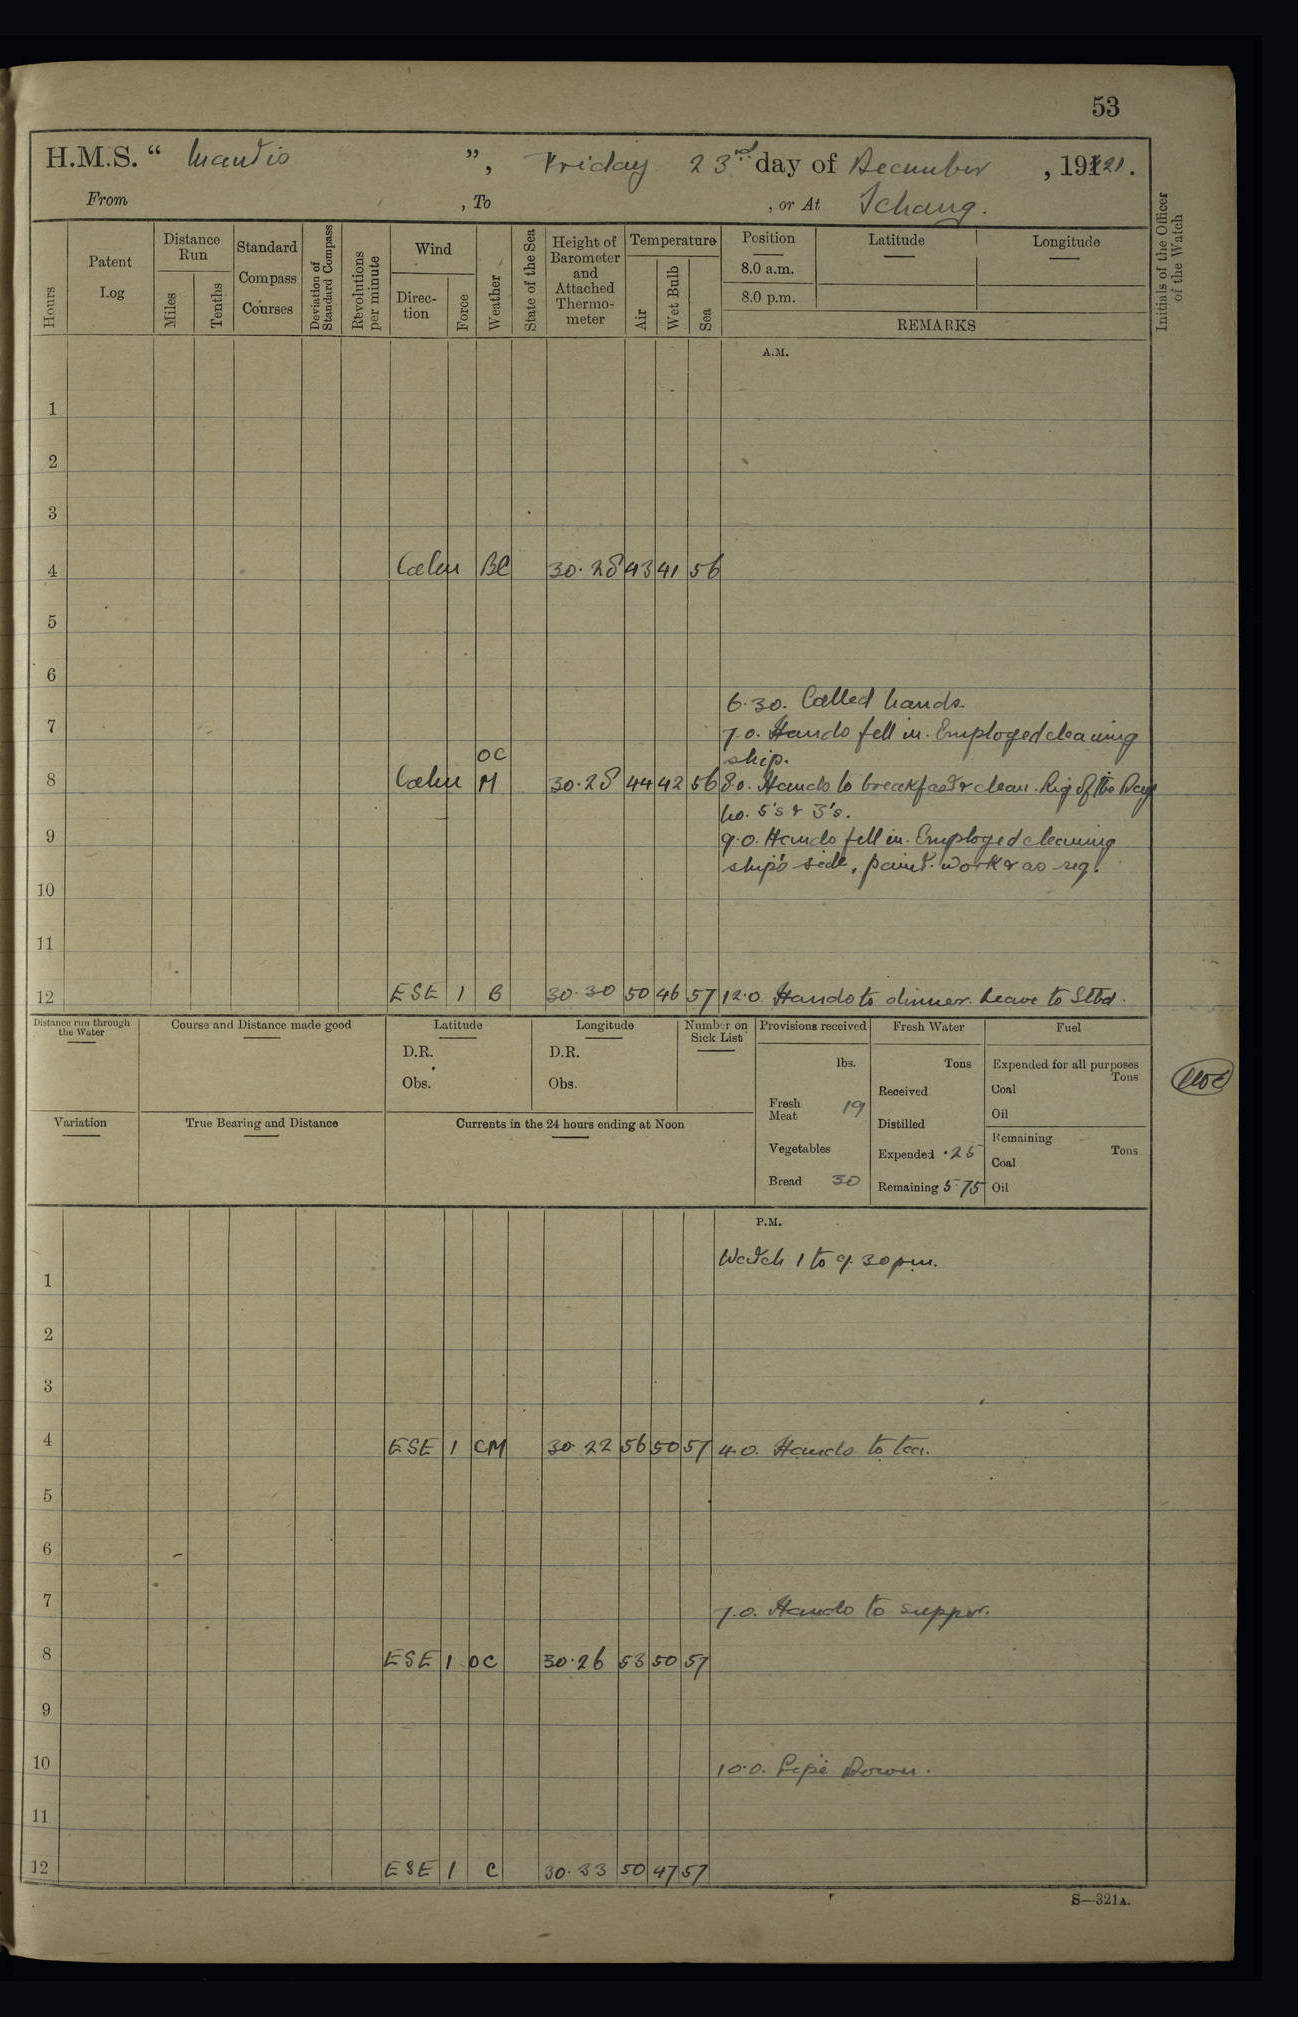 53
H.M.S. “ Mantis ”, Friday 23rd day of December , 1921.
From , To , or At Ichang.
Hours
Patent Log
Distance Run
Miles
Tenths
Standard Compass Courses
Deviation of Standard Compass
Revolutions per minute
Wind
Direction
Force
Weather
State of the Sea
Height of Barometer and Attached Thermometer
Temperature
Air
Wet Bulb
Sea
Position
8.0 a.m.
8.0 p.m.
Latitude
Longitude
REMARKS
Initials of the Officer of the Watch
A.M.
1
2
3
4 Calm BC 30.28 43 41 56
5
6
6.30. Called hands.
7 7.0. Hands fell in. Employed cleaning
ship.
OC
8 Calm M 30.28 44 42 56 8.0. Hands to breakfast & clean. Rig of the Day
No. 5's & 3's.
9 9.0. Hands fell in. Employed cleaning
ship's side, paint-work & as req.
10
11
12 ESE 1 B 30.30 50 46 57 12.0 Hands to dinner. Leave to Stbd.
Distance run through the Water
Course and Distance made good
Latitude
D.R.
Obs.
Longitude
D.R.
Obs.
Number on Sick List
Provisions received
lbs.
Fresh Meat 19
Vegetables
Bread 30
Fresh Water
Tons
Received
Distilled
Expended .25
Remaining 5.75
Fuel
Expended for all purposes
Tons
Coal
Oil
Remaining
Tons
Coal
Oil
Variation
True Bearing and Distance
Currents in the 24 hours ending at Noon
P.M.
Watch 1 to 9.30 pm.
1
2
3
4 ESE 1 CM 30.22 56 50 57 4.0. Hands to tea.
5
6
7 7.0. Hands to supper.
8 ESE 1 OC 30.26 53 50 57
9
10 10.0. Pipe Down.
11
12 ESE 1 C 30.33 50 47 57
S—321A.